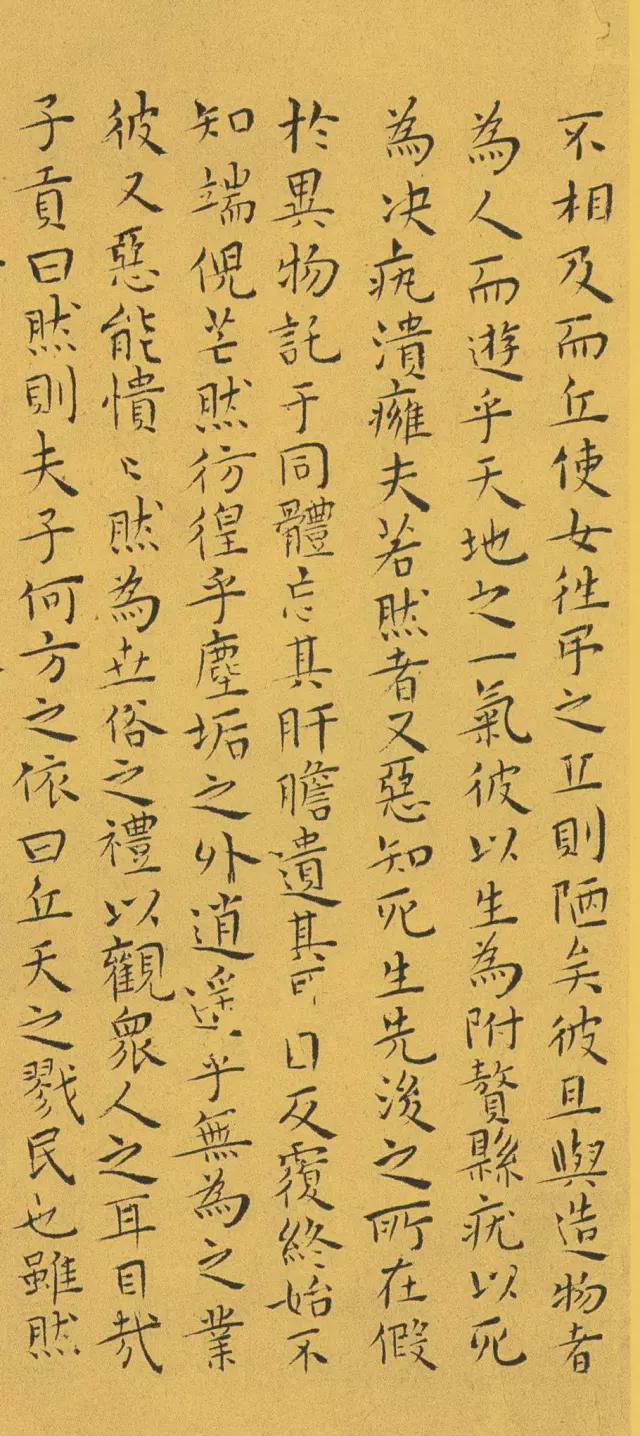 不相及而丘使女往弔之丘則陋矣彼且與造物者
為人而遊乎天地之一氣彼以生為附贅縣疣以死
為决疣潰癰夫若然者又惡知死生先後之所在假
於異物託于同體忘其肝膽遺其耳目反覆終始不
知端倪芒然彷徨乎塵垢之外逍遥乎無為之業
彼又惡能憒〻然為世俗之禮以觀衆人之耳目哉
子貢曰然則夫子何方之依曰丘天之戮民也雖然